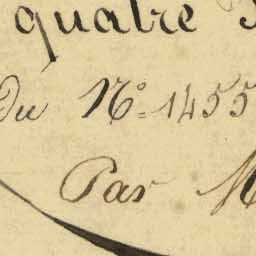 quatre
Du N.º 1455
Par M